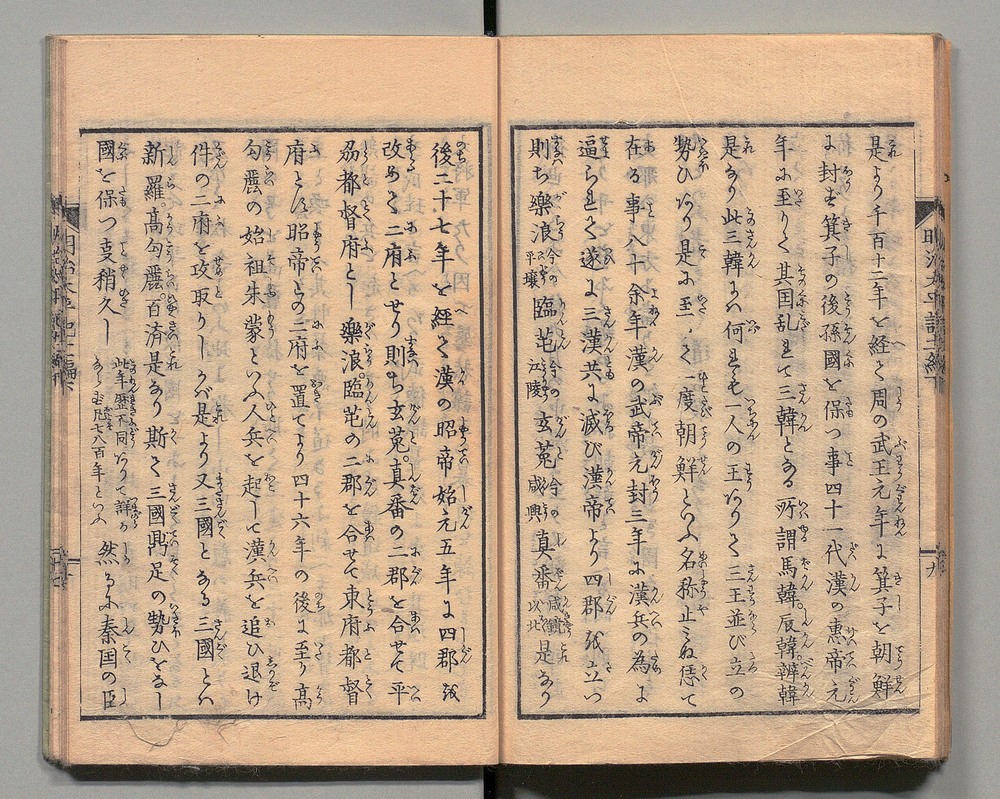 是より千百十二年を経て周の武王元年に箕子を朝鮮
に封ず箕子の後孫國を保つ事四十一代漢の惠帝元
年に至りて其国乱れて三韓となる所謂馬韓。辰韓辨韓
是なり此三韓には何れも一人の王ありて三王並び立の
勢ひなり是に至て一度朝鮮といふ名称止みぬ偖て
在る事八十余年漢の武帝元封三年に漢兵の為に
逼られて遂に三漢共に滅び漢帝より四郡を立つ
則ち樂浪今の平壤臨芚今の江陵玄菟今の咸興真番以北是なり
後二十七年を經て漢の昭帝始元五年に四郡を
改めて二府とせり則ち玄菟。真番の二郡を合せて平
刕都督府とし樂浪臨芚の二郡を合せて東府都督
府とす昭帝この二府を置てより四十六年の後に至り高
勾麗の始祖朱蒙といふ人兵を起して漢兵を追ひ退け
件の二府を攻取りしかば是より又三國となる三國とは
新羅。高勾麗。百済是なり斯て三國鼎足の勢ひをなし
國を保つ事稍久し此年歴不同ありて詳かならず凡七八百年といふ然るに秦国の臣